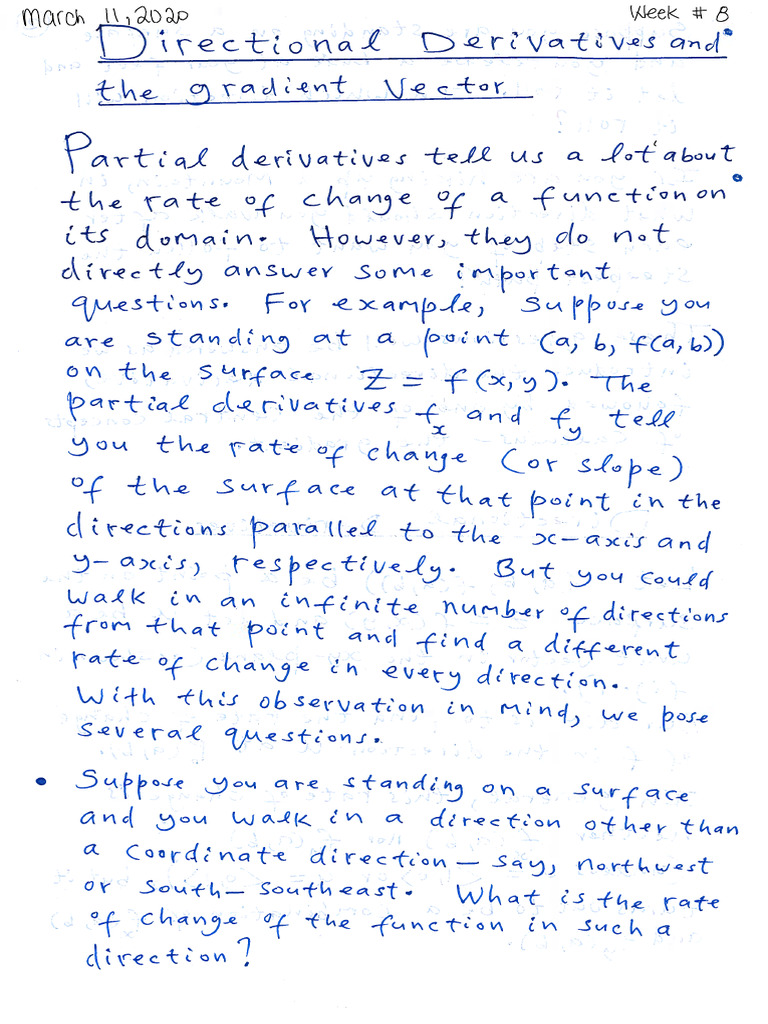 March 11, 2020
Week # 8
Directional Derivatives and
the gradient Vector
Partial derivatives tell us a lot about
the rate of change of a function on
its domain. However, they do not
directly answer some important
questions. For example, suppose you
are standing at a point (a, b, f(a,b))
on the surface Z = f(x,y). The
partial derivatives fx and fy tell
you the rate of change (or slope)
of the surface at that point in the
directions parallel to the x-axis and
y-axis, respectively. But you could
walk in an infinite number of directions
from that point and find a different
rate of change in every direction.
With this observation in mind, we pose
several questions.
• Suppose you are standing on a surface
and you walk in a direction other than
a coordinate direction — say, northwest
or south-southeast. What is the rate
of change of the function in such a
direction?